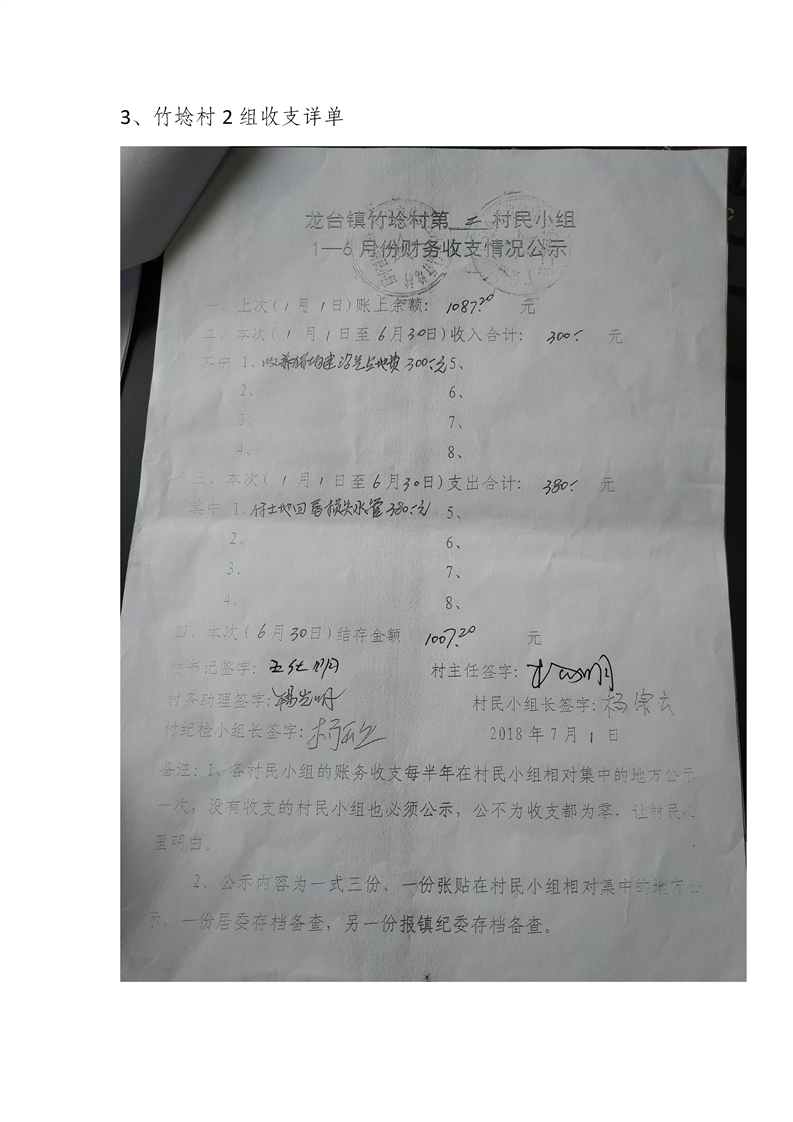 3、竹埝村2组收支详单
龙台镇竹埝村第 二 村民小组
1—6月份财务收支情况公示
一、上次(1月1日)账上余额: 1087.20 元
二、本次(1月1日至6月30日)收入合计: 300.- 元
其中 1、收养猪场建沼气占地费300.-元 5、
2、 6、
3、 7、
4、 8、
三、本次(1月1日至6月30日)支出合计: 380.- 元
其中 1、付土地回 损失水管380.-元 5、
2、 6、
3、 7、
4、 8、
四、本次(6月30日)结存金额 1007.20 元
村书记签字: 村主任签字:
村务助理签字:杨光明 村民小组长签字:杨宗云
村纪检小组长签字: 2018年7月1日
备注:1、各村民小组的账务收支每半年在村民小组相对集中的地方公示
一次,没有收支的村民小组也必须公示,公不为收支都为零,让村民心
里明白。
2、公示内容为一式三份、一份张贴在村民小组相对集中的地方公
示,一份居委存档备查,另一份报镇纪委存档备查。